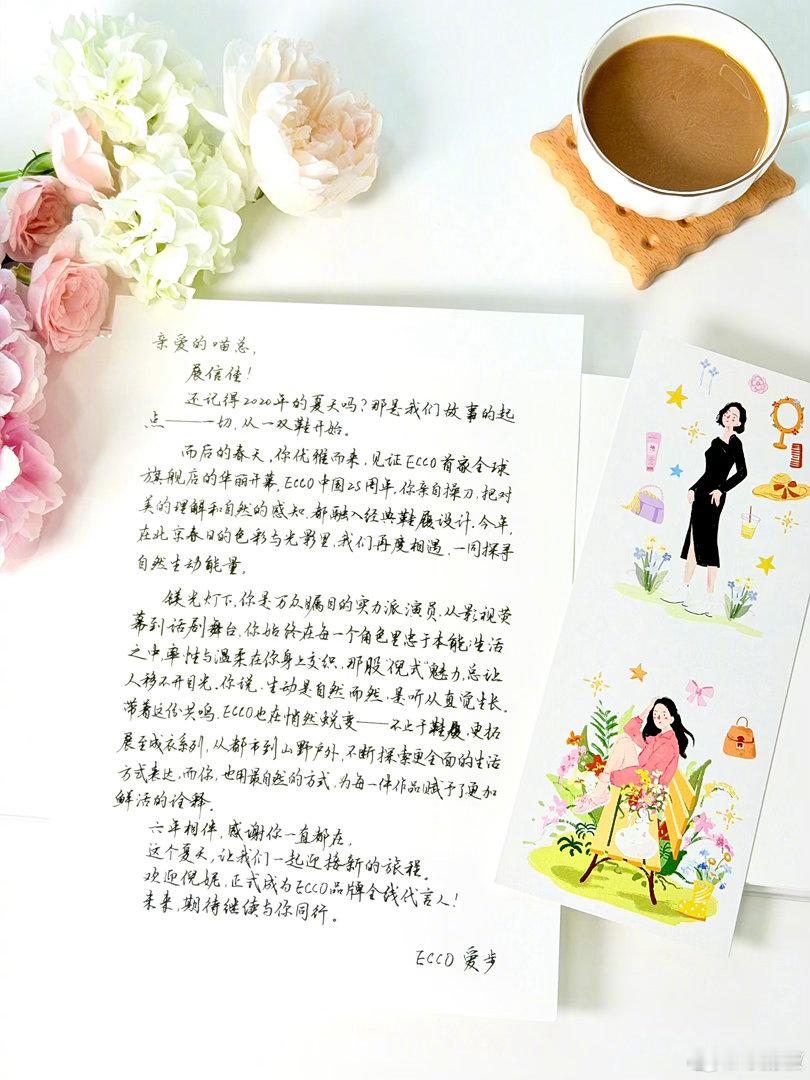 亲爱的喵总，
展信佳！
还记得2020年的夏天吗？那是我们故事的起
点——一切，从一双鞋开始。
而后的春天，你优雅而来，见证ECCO首家全球
旗舰店的华丽开幕，ECCO中国25周年，你亲自操刀，把对
美的理解和自然的感知，都融入经典鞋履设计，今年，
在北京春日的色彩与光影里，我们再度相遇，一同探寻
自然生动能量。
镁光灯下，你是万众瞩目的实力派演员，从影视荧
幕到话剧舞台，你始终在每一个角色里忠于本能；生活
之中，率性与温柔在你身上交织，那股“倪式”魅力，总让
人移不开目光，你说，生动是自然而然，是听从直觉生长。
带着这份共鸣，ECCO也在悄然蜕变——不止于鞋履，更拓
展至成衣系列，从都市到山野户外，不断探索更全面的生活
方式表达，而你，也用最自然的方式，为每一件作品赋予了更加
鲜活的诠释。
六年相伴，感谢你一直都在，
这个夏天，让我们一起迎接新的旅程。
欢迎倪妮，正式成为ECCO品牌全线代言人！
未来，期待继续与你同行。
ECCO 爱步